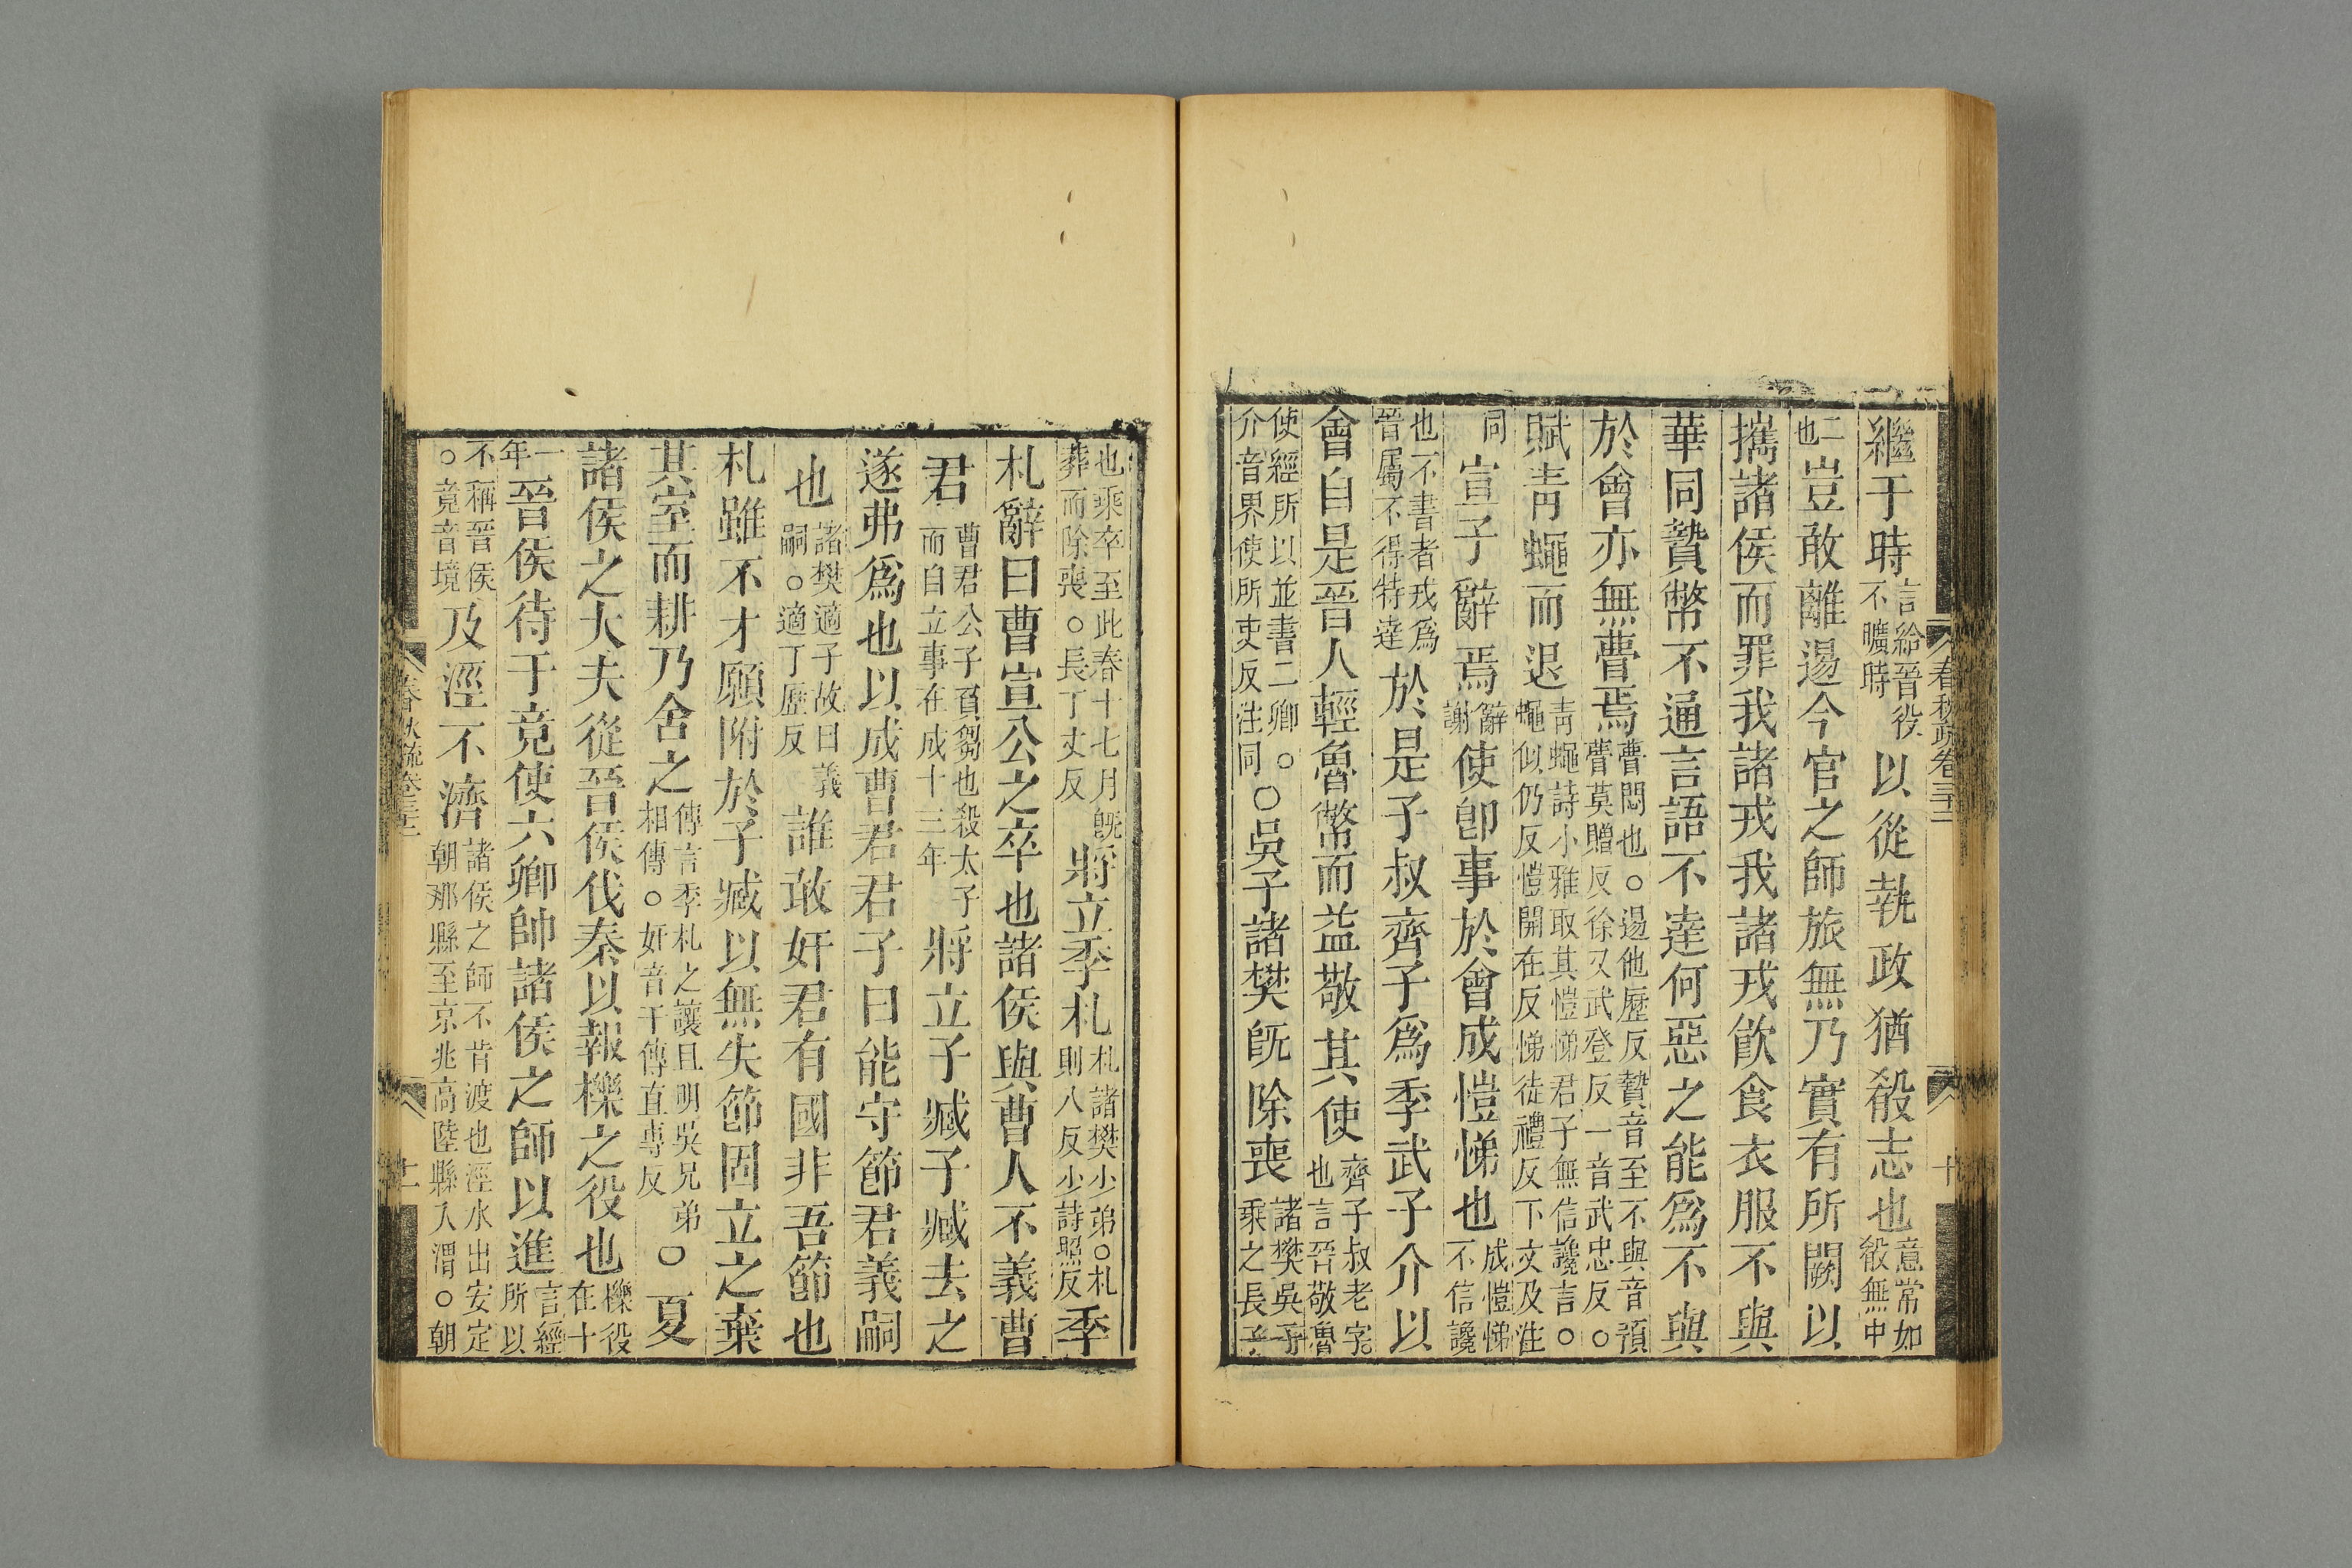 繼于時言給晉役不曠時以從執政猶殽志也意常如殽無中
二也豈敢離逷今官之師旅無乃實有所闕以
攜諸侯而罪我諸戎我諸戎飲食衣服不與
華同贄幣不通言語不達何惡之能爲不與
於會亦無瞢焉瞢悶也○逷他歷反贄音至不與音預瞢莫贈反徐又武登反一音武忠反○
賦靑蠅而退靑蠅詩小雅取其愷悌君子無信讒言○蠅似仍反愷開在反悌徒禮反下文及注
同宣子辭焉辭謝使卽事於會成愷悌也成愷悌不信讒
也不書者戎爲晉屬不得特達於是子叔齊子爲季武子介以
會自是晉人輕魯幣而益敬其使齊子叔老字也言晉敬魯
使經所以並書二卿○介音界使所吏反注同○吳子諸樊旣除喪諸樊吳子乘之長子
春秋疏卷三十二
十
也乘卒至此春十七月旣葬而除喪○長丁丈反將立季札札諸樊少弟○札則八反少詩照反季
札辭曰曹宣公之卒也諸侯與曹人不義曹
君曹君公子負芻也殺太子而自立事在成十三年將立子臧子臧去之
遂弗爲也以成曹君君子曰能守節君義嗣
也諸樊適子故曰義嗣○適丁歷反誰敢奸君有國非吾節也
札雖不才願附於子臧以無失節固立之棄
其室而耕乃舍之傳言季札之讓且明吳兄弟相傳○奸音干傳直專反○夏
諸侯之大夫從晉侯伐秦以報櫟之役也櫟役在十
一年晉侯待于竟使六卿帥諸侯之師以進言經所以
不稱晉侯○竟音境及涇不濟諸侯之師不肯渡也涇水出安定朝那縣至京兆高陸縣入渭○朝
春秋疏卷三十二
十一